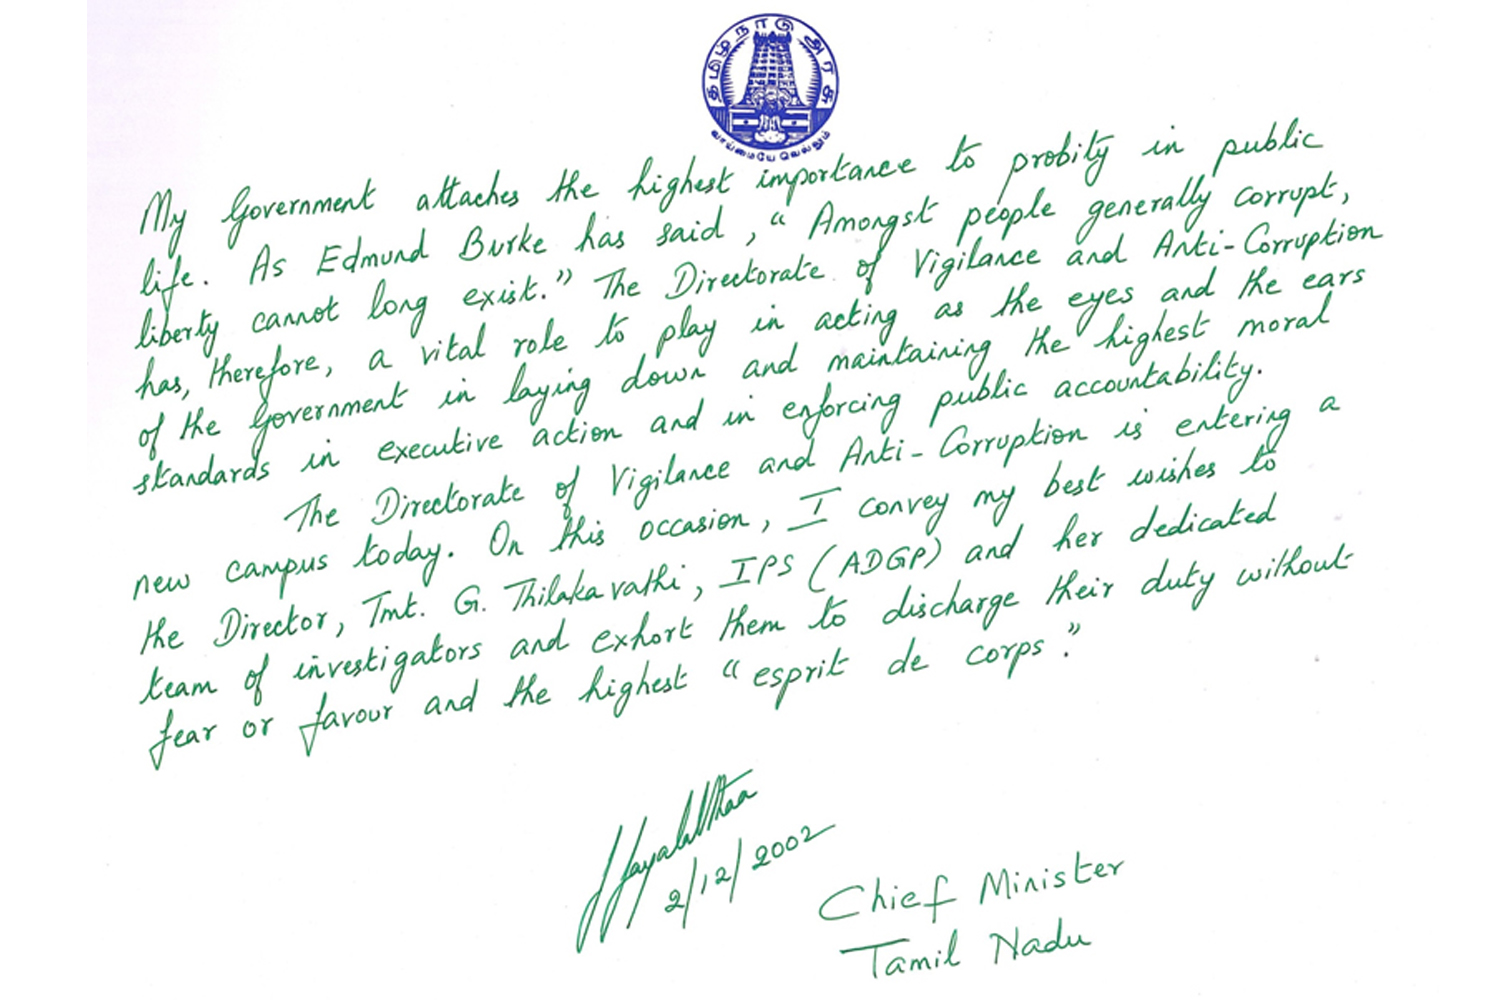 தமிழ்நாடு அரசு
வாய்மையே வெல்லும்
My Government attaches the highest importance to probity in public
life. As Edmund Burke has said, "Amongst people generally corrupt,
liberty cannot long exist." The Directorate of Vigilance and Anti-Corruption
has, therefore, a vital role to play in acting as the eyes and the ears
of the Government in laying down and maintaining the highest moral
standards in executive action and in enforcing public accountability.
The Directorate of Vigilance and Anti-Corruption is entering a
new campus today. On this occasion, I convey my best wishes to
the Director, Tmt. G. Thilakavathi, IPS (ADGP) and her dedicated
team of investigators and exhort them to discharge their duty without
fear or favour and the highest "esprit de corps."
J Jayalalithaa
2/12/2002
Chief Minister
Tamil Nadu